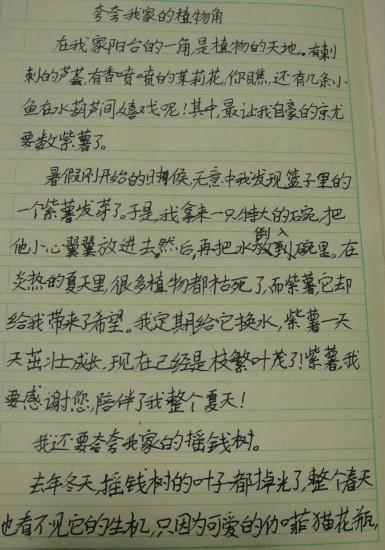 夸夸我家的植物角
在我家阳台的一角是植物的天地。有刺
刺的芦荟,有香喷喷的茉莉花,你瞧,还有几条小
鱼在水葫芦间嬉戏呢!其中,最让我自豪的京尤
要数紫薯了。
暑假刚开始的时候,无意中我发现篮子里的
一个紫薯发芽了。于是,我拿来一只特大的碗,把
他小心翼翼放进去,然后,再把水倒入碗里。在
炎热的夏天里,很多植物都枯死了,而紫薯它却
给我带来了希望。我定期给它换水,紫薯一天
天茁壮成长,现在已经是枝繁叶茂了!紫薯,我
要感谢您,陪伴了我整个夏天!
我还要夸夸我家的摇钱树。
去年冬天,摇钱树的叶子都掉光了,整个春天
也看不见它的生机,只因为可爱的加菲猫花瓶,